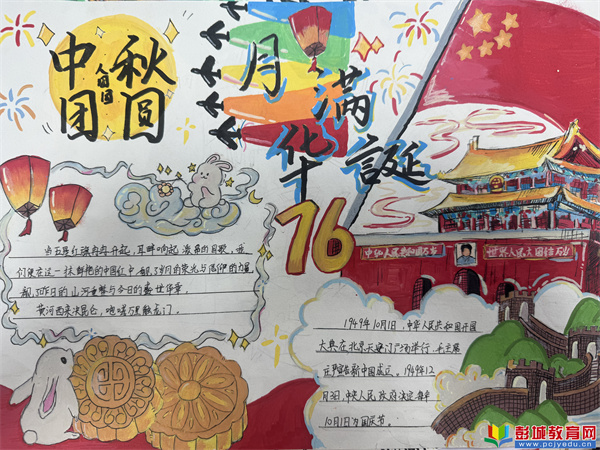 中秋
团圆
月满
华誕
76
当五星红旗冉冉升起，耳畔响起激昂的国歌，我
们便在这一抹鲜艳的中国红中，的荣光与信仰的力量
昨日的山河重整与今日的盛世华章
黄河西来决昆仑，咆哮万里触龙门。
中华人民共和国万岁
世界人民大团结万岁
1949年10月1日，中华人民共和国开国
大典在北京天安门广场举行，毛主席
宣告新中国成立。1949年12
月3日，中央人民政府决定每年
10月1日为国庆节。
彭城教育网
www.pcjyedu.cn